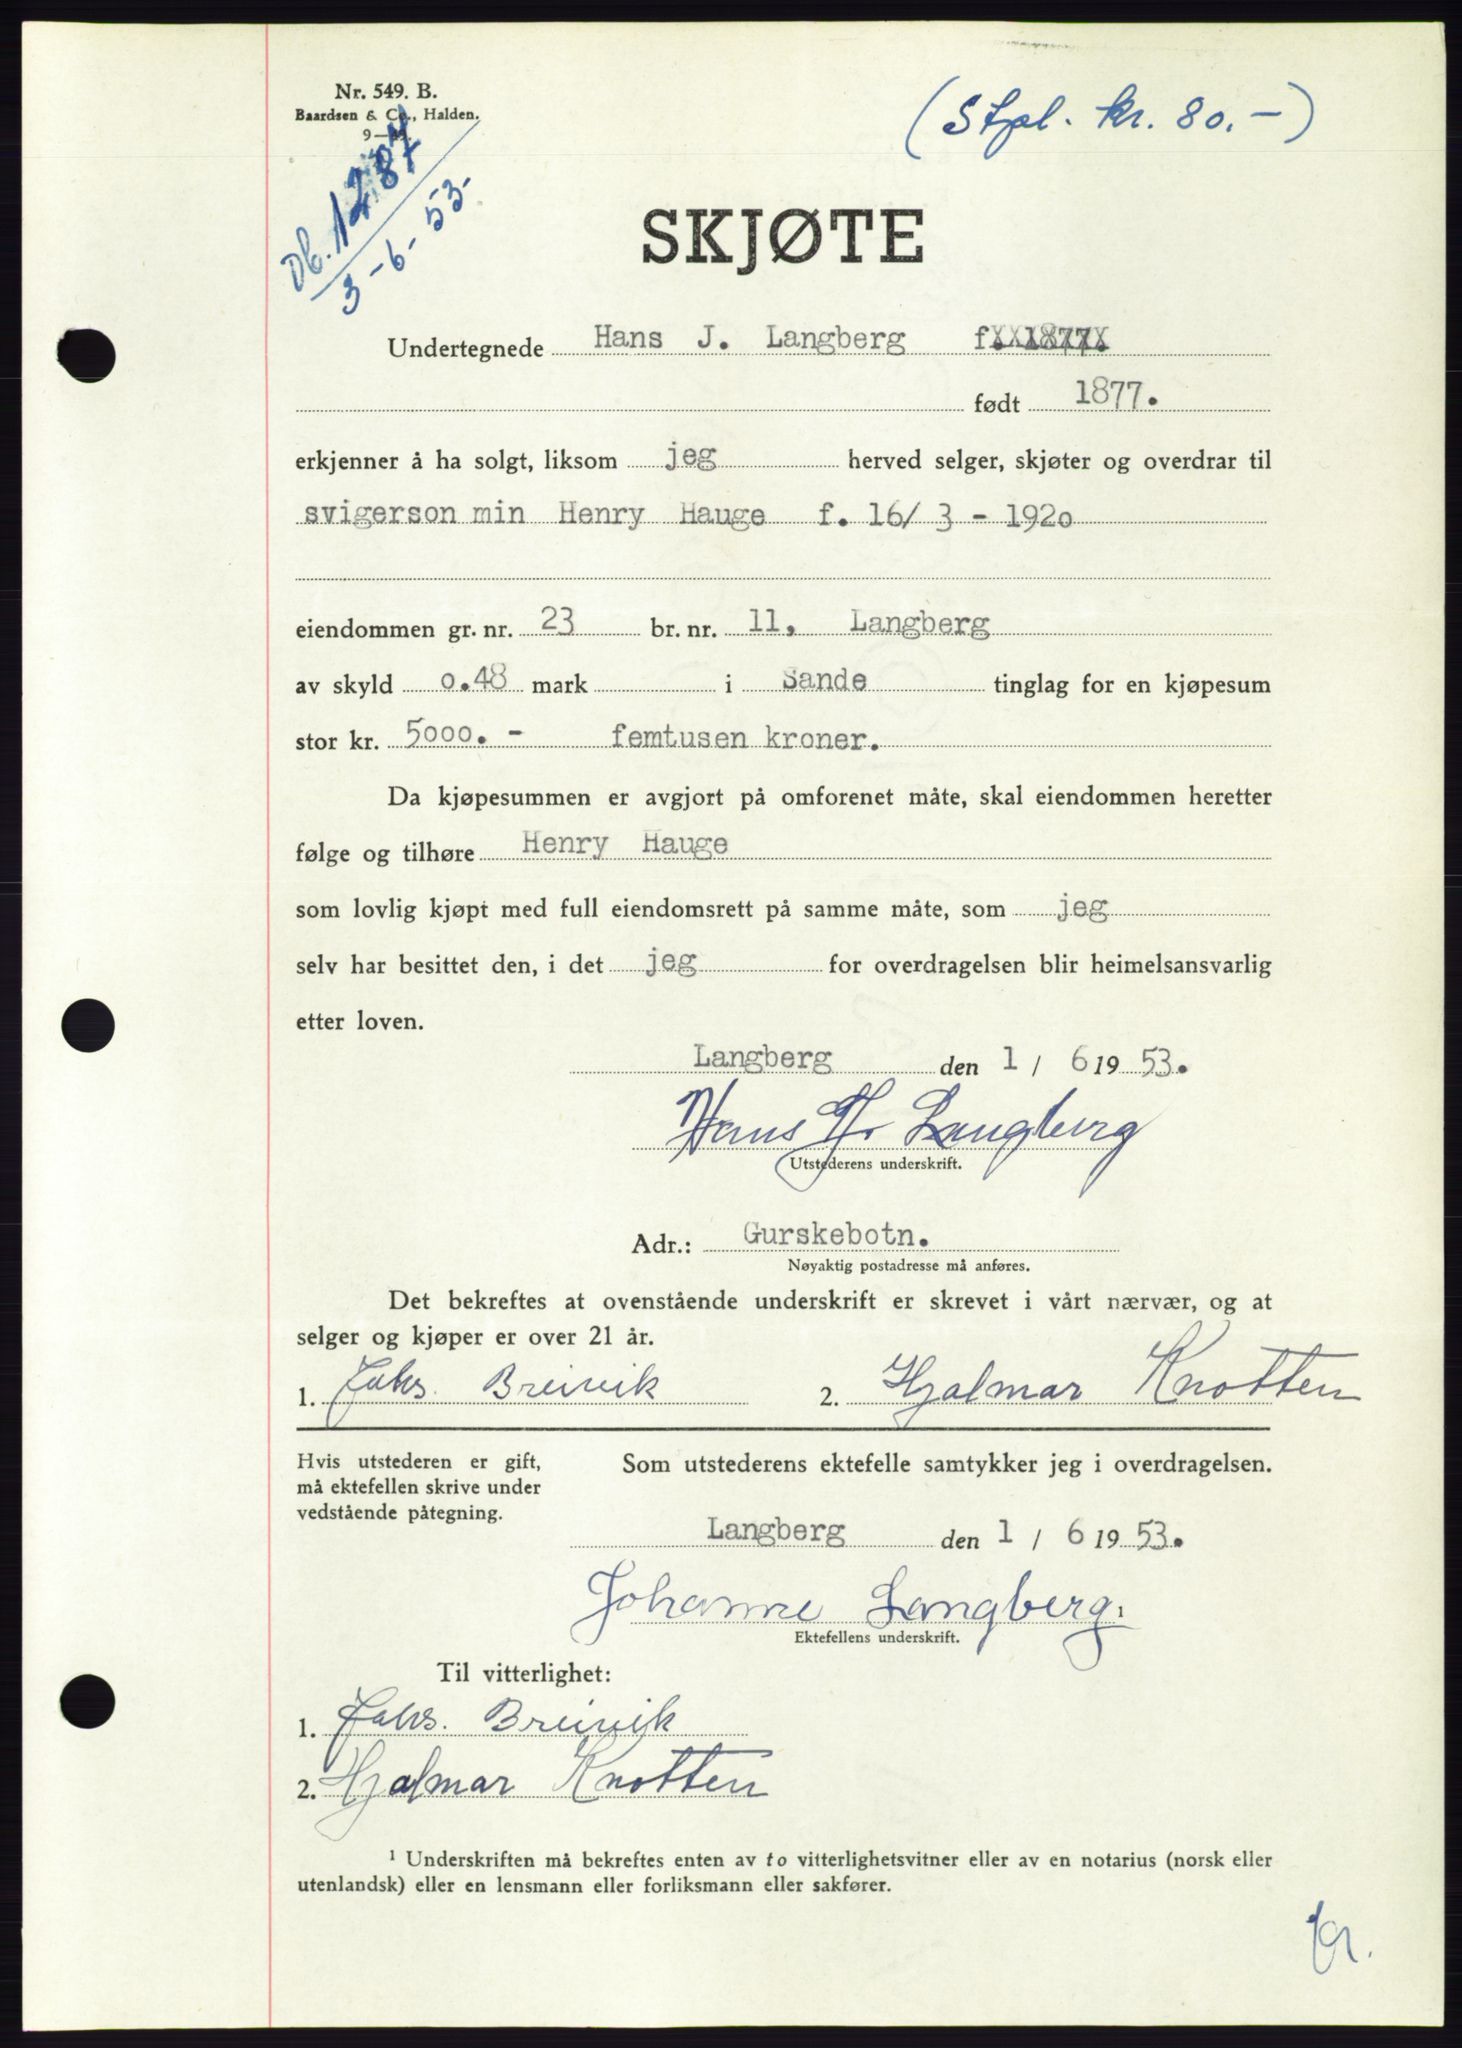 Nr. 549. B.
Baardsen & Co., Halden.
(Stpl. kr. 80.-)
Db. 1287
3-6-53-
SKJØTE
Undertegnede Hans J. Langberg f. 1877.
født 1877.
erkjenner å ha solgt, liksom jeg herved selger, skjøter og overdrar til
svigerson min Henry Hauge f. 16/ 3 - 1920
eiendommen gr. nr. 23 br. nr. 11, Langberg
av skyld 0.48 mark i Sande tinglag for en kjøpesum
stor kr. 5000. - femtusen kroner.
Da kjøpesummen er avgjort på omforenet måte, skal eiendommen heretter
følge og tilhøre Henry Hauge
som lovlig kjøpt med full eiendomsrett på samme måte, som jeg
selv har besittet den, i det jeg for overdragelsen blir heimelsansvarlig
etter loven.
Langberg den 1 / 6 19 53.
Hans J. Langberg
Utstederens underskrift.
Adr.: Gurskebotn.
Nøyaktig postadresse må anføres.
Det bekreftes at ovenstående underskrift er skrevet i vårt nærvær, og at
selger og kjøper er over 21 år.
1. Jahs. Breivik 2. Hjalmar Knotten
Hvis utstederen er gift,
må ektefellen skrive under
vedstående påtegning.
Som utstederens ektefelle samtykker jeg i overdragelsen.
Langberg den 1 / 6 19 53.
Johanne Langberg. 1
Ektefellens underskrift.
Til vitterlighet:
1. Jahs. Breivik
2. Hjalmar Knotten
1 Underskriften må bekreftes enten av to vitterlighetsvitner eller av en notarius (norsk eller
utenlandsk) eller en lensmann eller forliksmann eller sakfører.